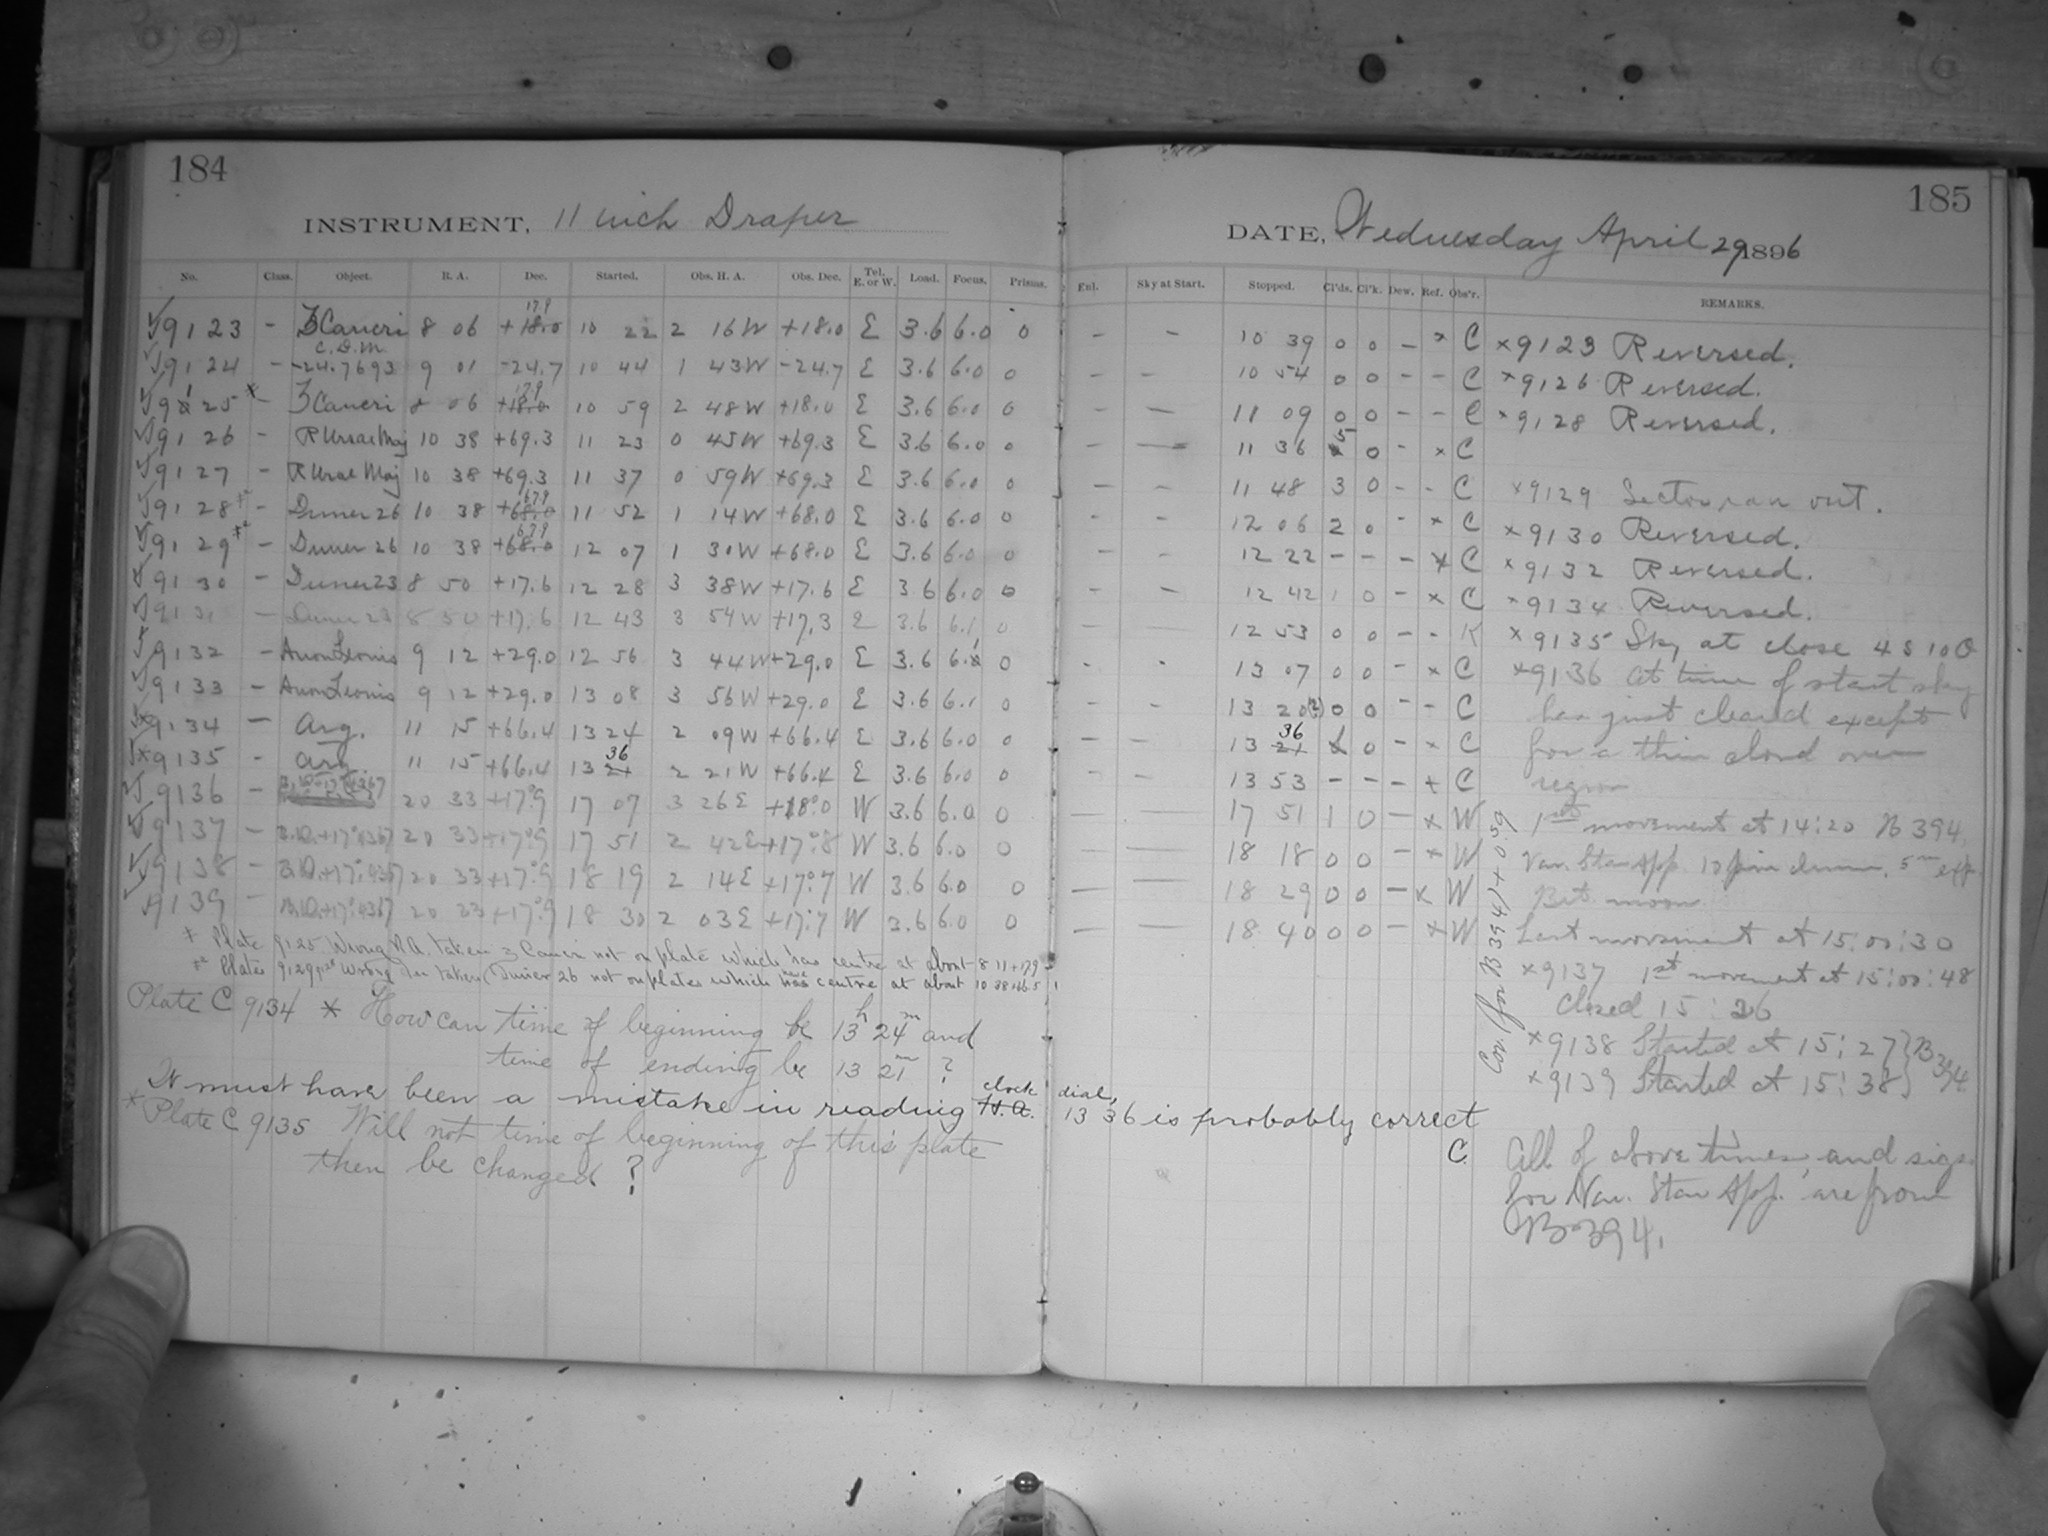 184
INSTRUMENT, 11 inch Draper
No. Class. Object. R. A. Dec. Started. Obs. H. A. Obs. Dec. Tel. E. or W. Load. Focus. Prisms.
9123 - Cancri 8 06 +18.0 17.9 10 22 2 16W +18.0 E 3.6 6.0 0
C.D.M.
9124 - -24.7693 9 01 -24.7 10 44 1 43W -24.7 E 3.6 6.0 0
9125 * - Cancri 8 06 +18.0 17.9 10 59 2 48W +18.0 E 3.6 6.0 0
9126 - R Ursae Maj 10 38 +69.3 11 23 0 45W +69.3 E 3.6 6.0 0
9127 - R Ursae Maj 10 38 +69.3 11 37 0 59W +69.3 E 3.6 6.0 0
9128 *² - Duner 26 10 38 +68.0 67.9 11 52 1 14W +68.0 E 3.6 6.0 0
9129 *² - Duner 26 10 38 +68.0 67.9 12 07 1 30W +68.0 E 3.6 6.0 0
9130 - Duner 23 8 50 +17.6 12 28 3 38W +17.6 E 3.6 6.0 0
9131 - Duner 23 8 50 +17.6 12 43 3 54W +17.3 E 3.6 6.1 0
9132 - Anon Leonis 9 12 +29.0 12 56 3 44W +29.0 E 3.6 6.1 0
9133 - Anon Leonis 9 12 +29.0 13 08 3 56W +29.0 E 3.6 6.1 0
*9134 - Arg. 11 15 +66.4 13 24 2 09W +66.4 E 3.6 6.0 0
*9135 - Arg. 11 15 +66.4 13 21 36 2 21W +66.4 E 3.6 6.0 0
9136 - +17°4367 20 33 +17°9 17 07 3 26E +18°0 W 3.6 6.0 0
9137 - +17°4367 20 33 +17°9 17 51 2 42E +17°8 W 3.6 6.0 0
9138 - +17°4367 20 33 +17°9 18 19 2 14E +17°7 W 3.6 6.0 0
9139 - +17°4367 20 33 +17°9 18 30 2 03E +17°7 W 3.6 6.0 0
* Plate 9125 Wrong R.A. taken Cancri not on plate which has centre at about 8 11 +17.9
*² Plates 9129, 28 Wrong Dec taken (Duner 26 not on plates which have centre at about 10 38 +66.5
Plate C 9134 * How can time of beginning be 13h 24m and
time of ending be 13 21m ?
It must have been a mistake in reading H.A. clock dial, 13 36 is probably correct
C.
* Plate C 9135 Will not time of beginning of this plate
then be changed ?
185
DATE, Wednesday April 29 1896
Enl. Sky at Start. Stopped. Cl'ds. Cl'k. Dew. Ref. Obs'r. REMARKS.
- - 10 39 0 0 - × C
- - 10 54 0 0 - - C
- - 11 09 0 0 - - C
- - 11 36 5 0 - × C
- - 11 48 3 0 - - C
- - 12 06 2 0 - × C
- - 12 22 - - - × C
- - 12 42 1 0 - × C
- - 12 53 0 0 - - K
- - 13 07 0 0 - × C
- - 13 20(?) 0 0 - - C
- - 13 21 36 0 - × C
- - 13 53 - - - × C
- - 17 51 1 0 - × W
- - 18 18 0 0 - × W
- - 18 29 0 0 - × W
- - 18 40 0 0 - × W
×9123 Reversed.
×9126 Reversed.
×9128 Reversed.
×9129 Sector ran out.
×9130 Reversed.
×9132 Reversed.
×9134 Reversed.
×9135 Sky at close 4 S 10 0
×9136 At time of start sky
has just cleared except
for a thin cloud over
region
1st movement at 14:20 B 394,
Var. Star App. 5m
Bet. moon
Last movement at 15:00:30
×9137 1st movement at 15:00:48
Closed 15:26
×9138 Started at 15:27 } B 394
×9139 Started at 15:38
Cor. (for B 394) + 0.s9
All of above times, and sigs.
for Var. Star App. are from
B 394.